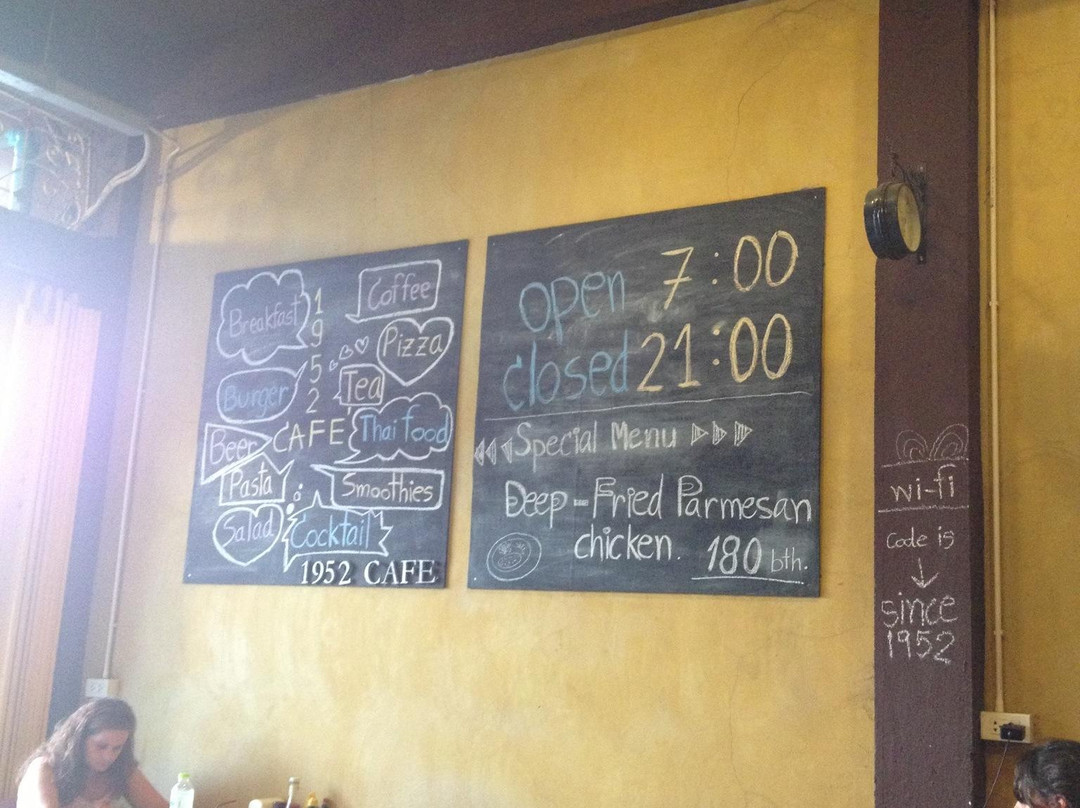 Breakfast
Coffee
1
9
5
2
Pizza
Tea
Burger
CAFE
Thai food
Beer
Pasta
Smoothies
Salad
Cocktail
1952 CAFE
open 7:00
closed 21:00
Special Menu
Deep-Fried Parmesan
chicken. 180 bth.
wi-fi
Code is
since
1952